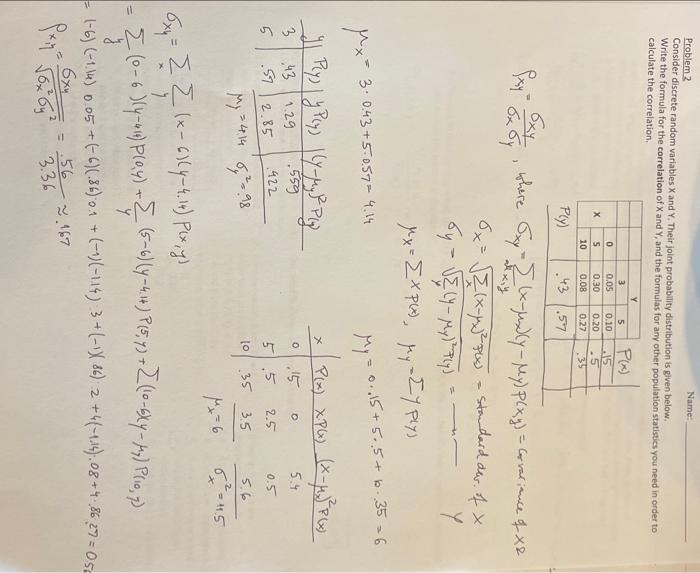 Name:
Problem 2
Consider discrete random variables X and Y. Their joint probability distribution is given below.
Write the formula for the correlation of X and Y, and the formulas for any other population statistics you need in order to
calculate the correlation.
Y
3 5 P(x)
0 0.05 0.10 .15
X 5 0.30 0.20 .5
10 0.08 0.27 .35
P(y) .43 .57
ρxy = σxy / σx σy , where σxy = Σ all x,y (x-μx)(y-μy) P(x,y) = covariance of X&
σx = √Σx (x-μx)² P(x) = standard dev. of X
σy = √Σy (y-μy)² P(y) = — " — Y
μx = Σ x P(x), μy = Σ y P(y)
μx = 3·0.43 + 5·0.57 = 4.14
μy = 0·.15 + 5·.5 + 10·.35 = 6
y P(y) yP(y) (y-μy)² P(y)
3 .43 1.29 .559
5 .57 2.85 .422
μy = 4.14 σy² = .98
x P(x) xP(x) (x-μx)² P(x)
0 .15 0 5.4
5 .5 2.5 0.5
10 .35 3.5 5.6
μx = 6 σx² = 11.5
σxy = Σx Σy (x-6)(y-4.14) P(x,y)
= Σy (0-6)(y-4.14) P(0,y) + Σy (5-6)(y-4.14) P(5,y) + Σ(10-6)(y-μy) P(10,y)
= (-6)(-1.14) 0.05 + (-6)(.86) 0.1 + (-1)(-1.14) .3 + (-1)(.86) .2 + 4(-1.14) .08 + 4·.86·.27 = 0.56
ρxy = σxy / √σx² σy² = .56 / 3.36 ≈ .167